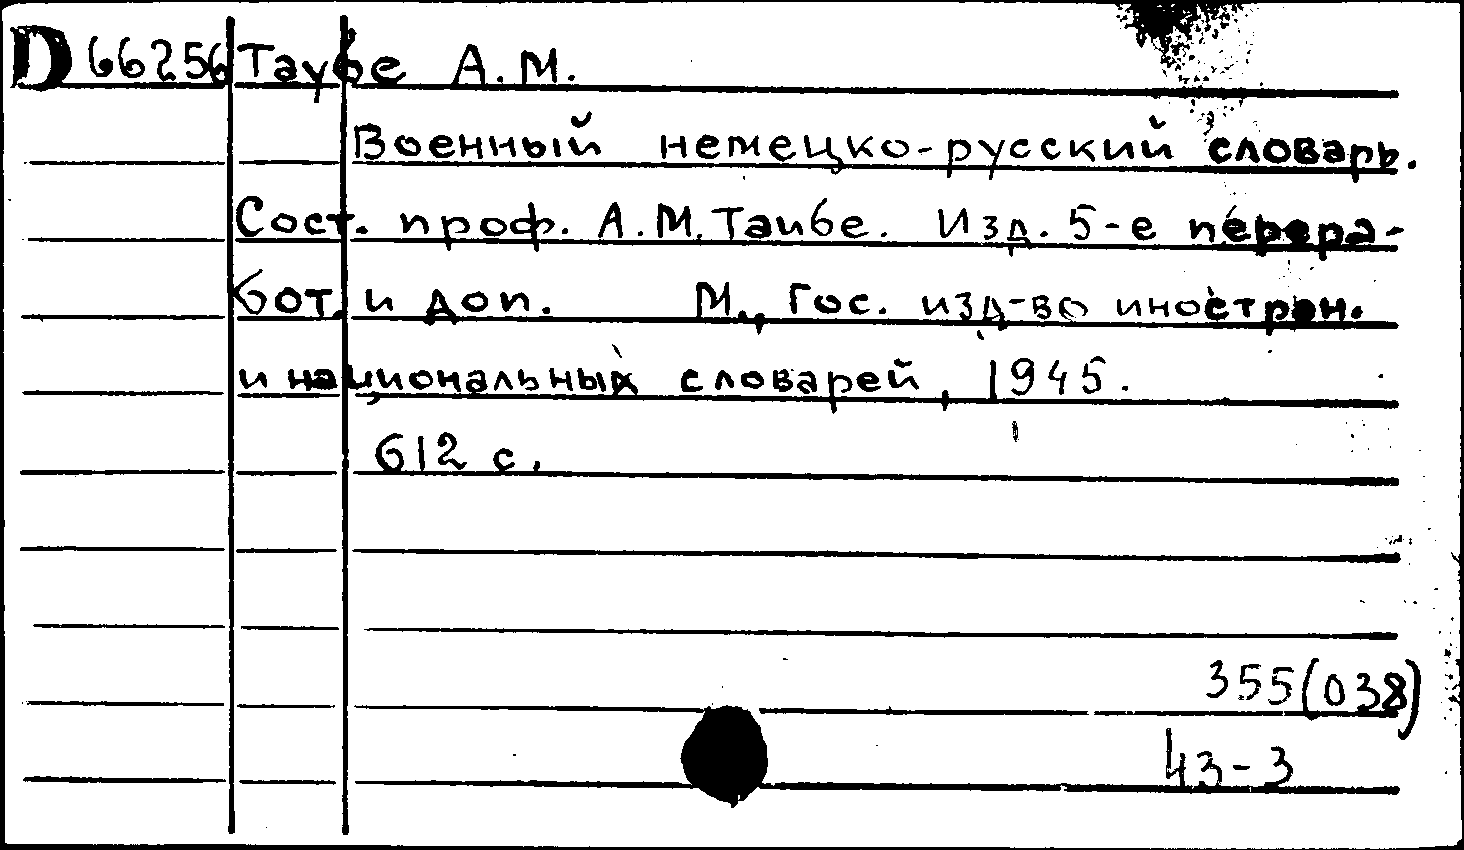 D 66256 Таубе А.М.
Военный немецко-русский словарь.
Сост. проф. А.М. Таибе. Изд. 5-е перера-
бот. и доп. М., Гос. изд-во иностран.
и национальных словарей, 1945.
612 с.
355(038)
43-3